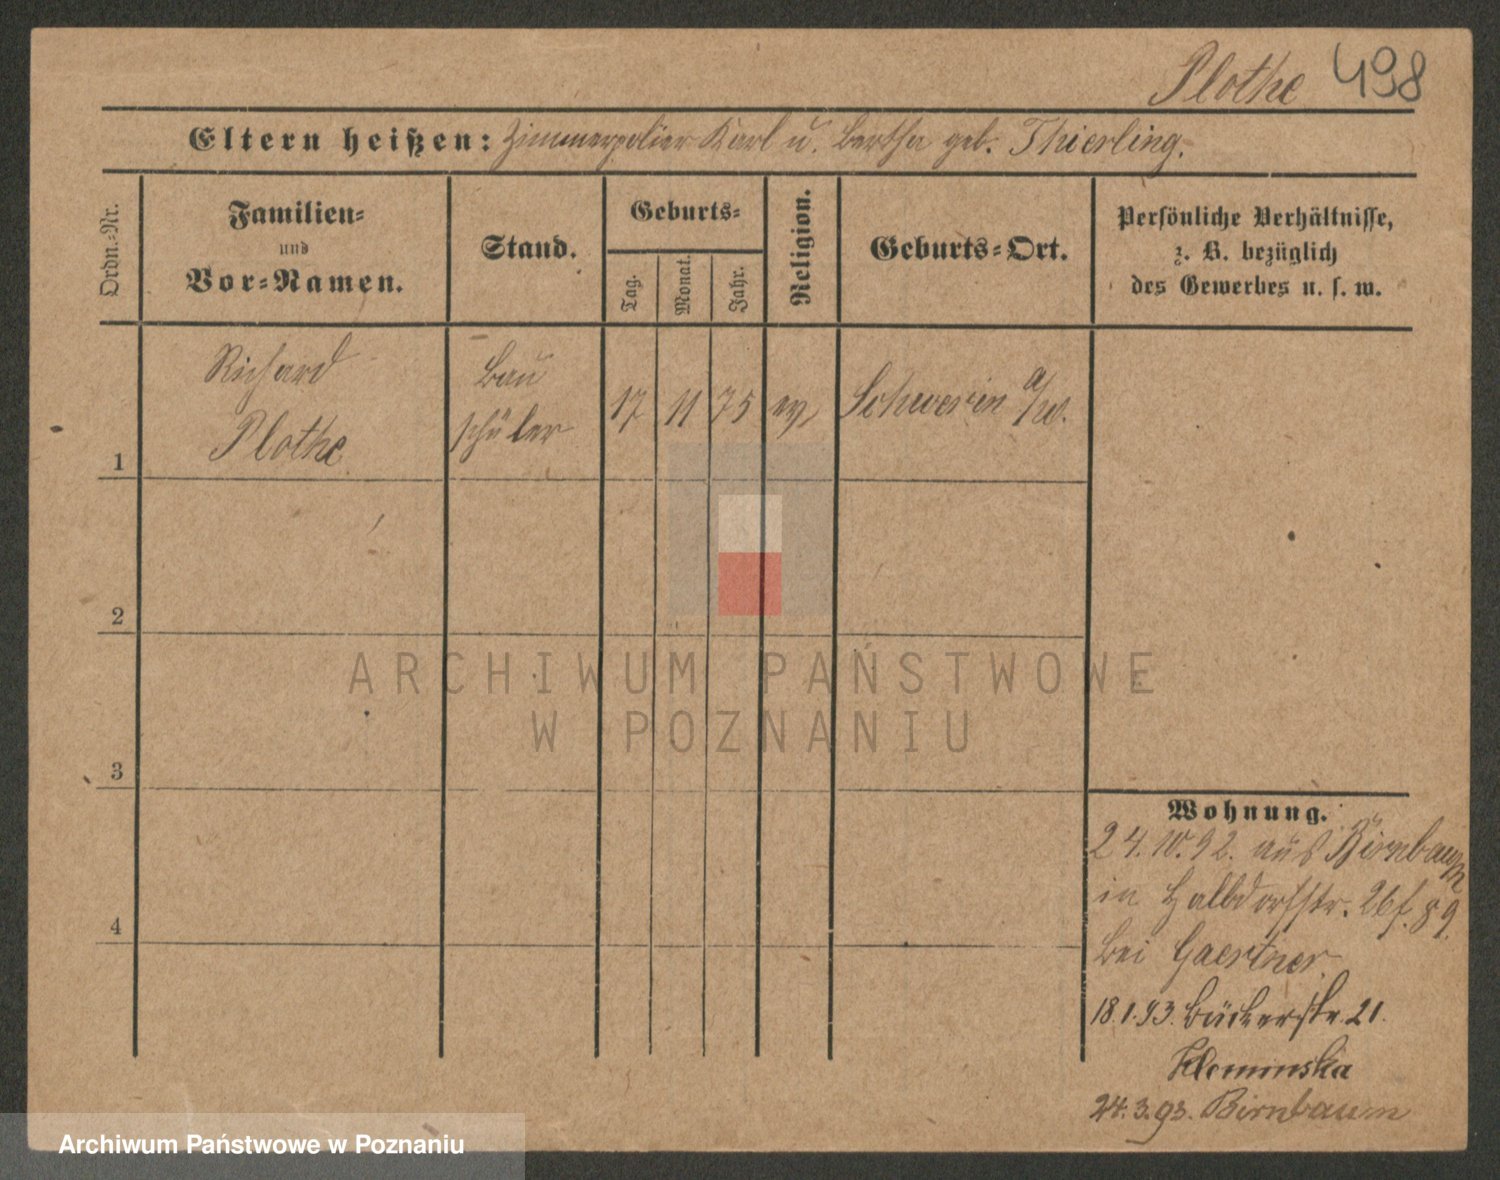 Plothe 498
Eltern heißen: Zimmerpolier Karl u. Bertha geb. Thierling.
Ordn.-Nr.
Familien-
und
Vor-Namen.
Stand.
Geburts-
Tag.
Monat.
Jahr.
Religion.
Geburts-Ort.
Persönliche Verhältnisse,
z. B. bezüglich
des Gewerbes u. s. w.
Richard
Plothe
Bau
schüler
17 11 75 ev. Schwerin a/W.
1
2
3
4
ARCHIWUM PAŃSTWOWE
W POZNANIU
Wohnung.
24.10.92. aus Birnbaum
in Halbdorfstr. 26
bei Gaertner
18.1.93. Bäckerstr. 21.
Klominska
24.3.93. Birnbaum
Archiwum Państwowe w Poznaniu